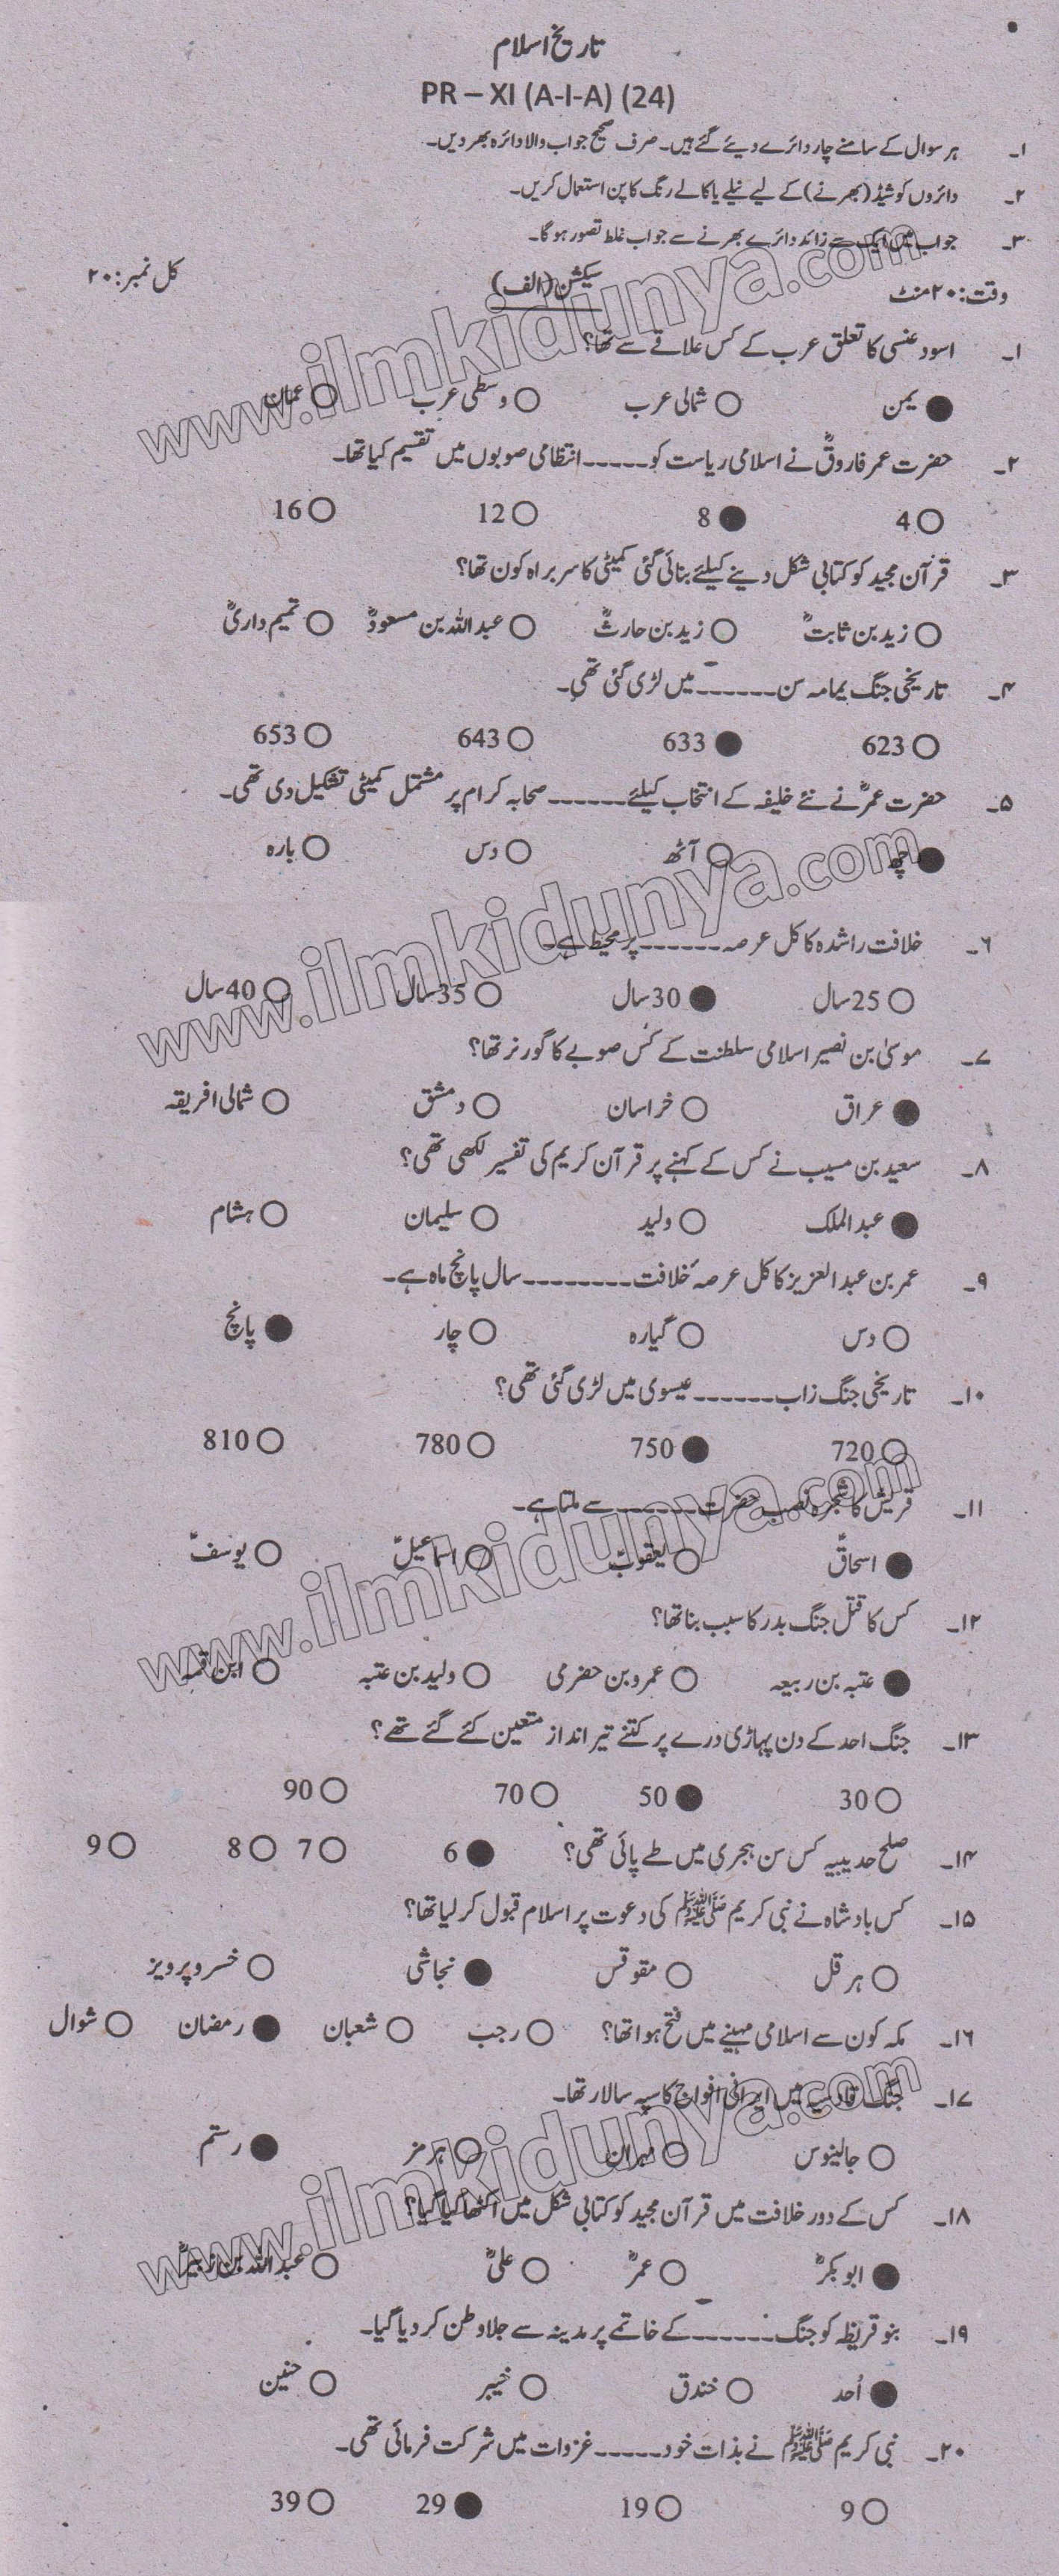 تاریخ اسلام
PR – XI (A-I-A) (24)
۱۔ ہر سوال کے سامنے چار دائرے دیئے گئے ہیں۔ صرف صحیح جواب والا دائرہ بھر دیں۔
۲۔ دائروں کو شیڈ (بھرنے) کے لیے نیلے یا کالے رنگ کا پن استعمال کریں۔
۳۔ جواب میں ایک سے زائد دائرے بھرنے سے جواب غلط تصور ہو گا۔
وقت: ۲۰ منٹ سیکشن (الف) کل نمبر: ۲۰
www.ilmkidunya.com
۱۔ اسود عنسی کا تعلق عرب کے کس علاقے سے تھا؟
● یمن ○ شمالی عرب ○ وسطی عرب ○ عمان
۲۔ حضرت عمر فاروقؓ نے اسلامی ریاست کو ۔۔۔۔۔ انتظامی صوبوں میں تقسیم کیا تھا۔
○ 4 ● 8 ○ 12 ○ 16
۳۔ قرآن مجید کو کتابی شکل دینے کیلئے بنائی گئی کمیٹی کا سربراہ کون تھا؟
○ زید بن ثابتؓ ○ زید بن حارثؓ ○ عبداللہ بن مسعودؓ ○ تمیم داریؓ
۴۔ تاریخی جنگ یمامہ سن ۔۔۔۔۔۔ میں لڑی گئی تھی۔
○ 623 ● 633 ○ 643 ○ 653
۵۔ حضرت عمرؓ نے نئے خلیفہ کے انتخاب کیلئے ۔۔۔۔۔۔ صحابہ کرام پر مشتمل کمیٹی تشکیل دی تھی۔
● چھ ○ آٹھ ○ دس ○ بارہ
www.ilmkidunya.com
۶۔ خلافت راشدہ کا کل عرصہ ۔۔۔۔۔۔ پر محیط ہے۔
○ 25 سال ● 30 سال ○ 35 سال ○ 40 سال
۷۔ موسیٰ بن نصیر اسلامی سلطنت کے کس صوبے کا گورنر تھا؟
● عراق ○ خراسان ○ دمشق ○ شمالی افریقہ
۸۔ سعید بن مسیب نے کس کے کہنے پر قرآن کریم کی تفسیر لکھی تھی؟
● عبدالملک ○ ولید ○ سلیمان ○ ہشام
۹۔ عمر بن عبدالعزیز کا کل عرصہٴ خلافت ۔۔۔۔۔۔۔۔ سال پانچ ماہ ہے۔
○ دس ○ گیارہ ○ چار ● پانچ
۱۰۔ تاریخی جنگ زاب ۔۔۔۔۔۔ عیسوی میں لڑی گئی تھی؟
○ 720 ● 750 ○ 780 ○ 810
www.ilmkidunya.com
۱۱۔ قریش کا شجرہ نصب حضرت ۔۔۔۔۔۔ سے ملتا ہے۔
● اسحاقؑ ○ یعقوبؑ ○ اسماعیلؑ ○ یوسفؑ
۱۲۔ کس کا قتل جنگ بدر کا سبب بنا تھا؟
● عتبہ بن ربیعہ ○ عمرو بن حضرمی ○ ولید بن عتبہ ○ ابن قمیہ
۱۳۔ جنگ احد کے دن پہاڑی درے پر کتنے تیر انداز متعین کئے گئے تھے؟
○ 30 ● 50 ○ 70 ○ 90
۱۴۔ صلح حدیبیہ کس سن ہجری میں طے پائی تھی؟ ● 6 ○ 7 ○ 8 ○ 9
۱۵۔ کس بادشاہ نے نبی کریم ﷺ کی دعوت پر اسلام قبول کر لیا تھا؟
○ ہرقل ○ مقوقس ● نجاشی ○ خسرو پرویز
۱۶۔ مکہ کون سے اسلامی مہینے میں فتح ہوا تھا؟ ○ رجب ○ شعبان ● رمضان ○ شوال
www.ilmkidunya.com
۱۷۔ جنگ قادسیہ میں ایرانی افواج کا سپہ سالار تھا۔
○ جالینوس ○ مہران ○ ہرمز ● رستم
۱۸۔ کس کے دور خلافت میں قرآن مجید کو کتابی شکل میں اکٹھا کیا گیا؟
● ابوبکرؓ ○ عمرؓ ○ علیؓ ○ عبداللہ بن زبیرؓ
۱۹۔ بنو قریظہ کو جنگ ۔۔۔۔۔۔ کے خاتمے پر مدینہ سے جلاوطن کر دیا گیا۔
● اُحد ○ خندق ○ خیبر ○ حنین
۲۰۔ نبی کریم ﷺ نے بذات خود ۔۔۔۔۔ غزوات میں شرکت فرمائی تھی۔
○ 9 ○ 19 ● 29 ○ 39